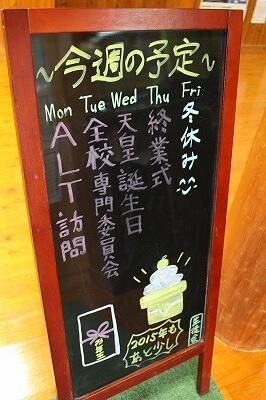 ～今週の予定～
Mon Tue Wed Thu Fri
ALT訪問
全校専門委員会
天皇誕生日
終業式
冬休み
お年玉
2015年も
あと少し